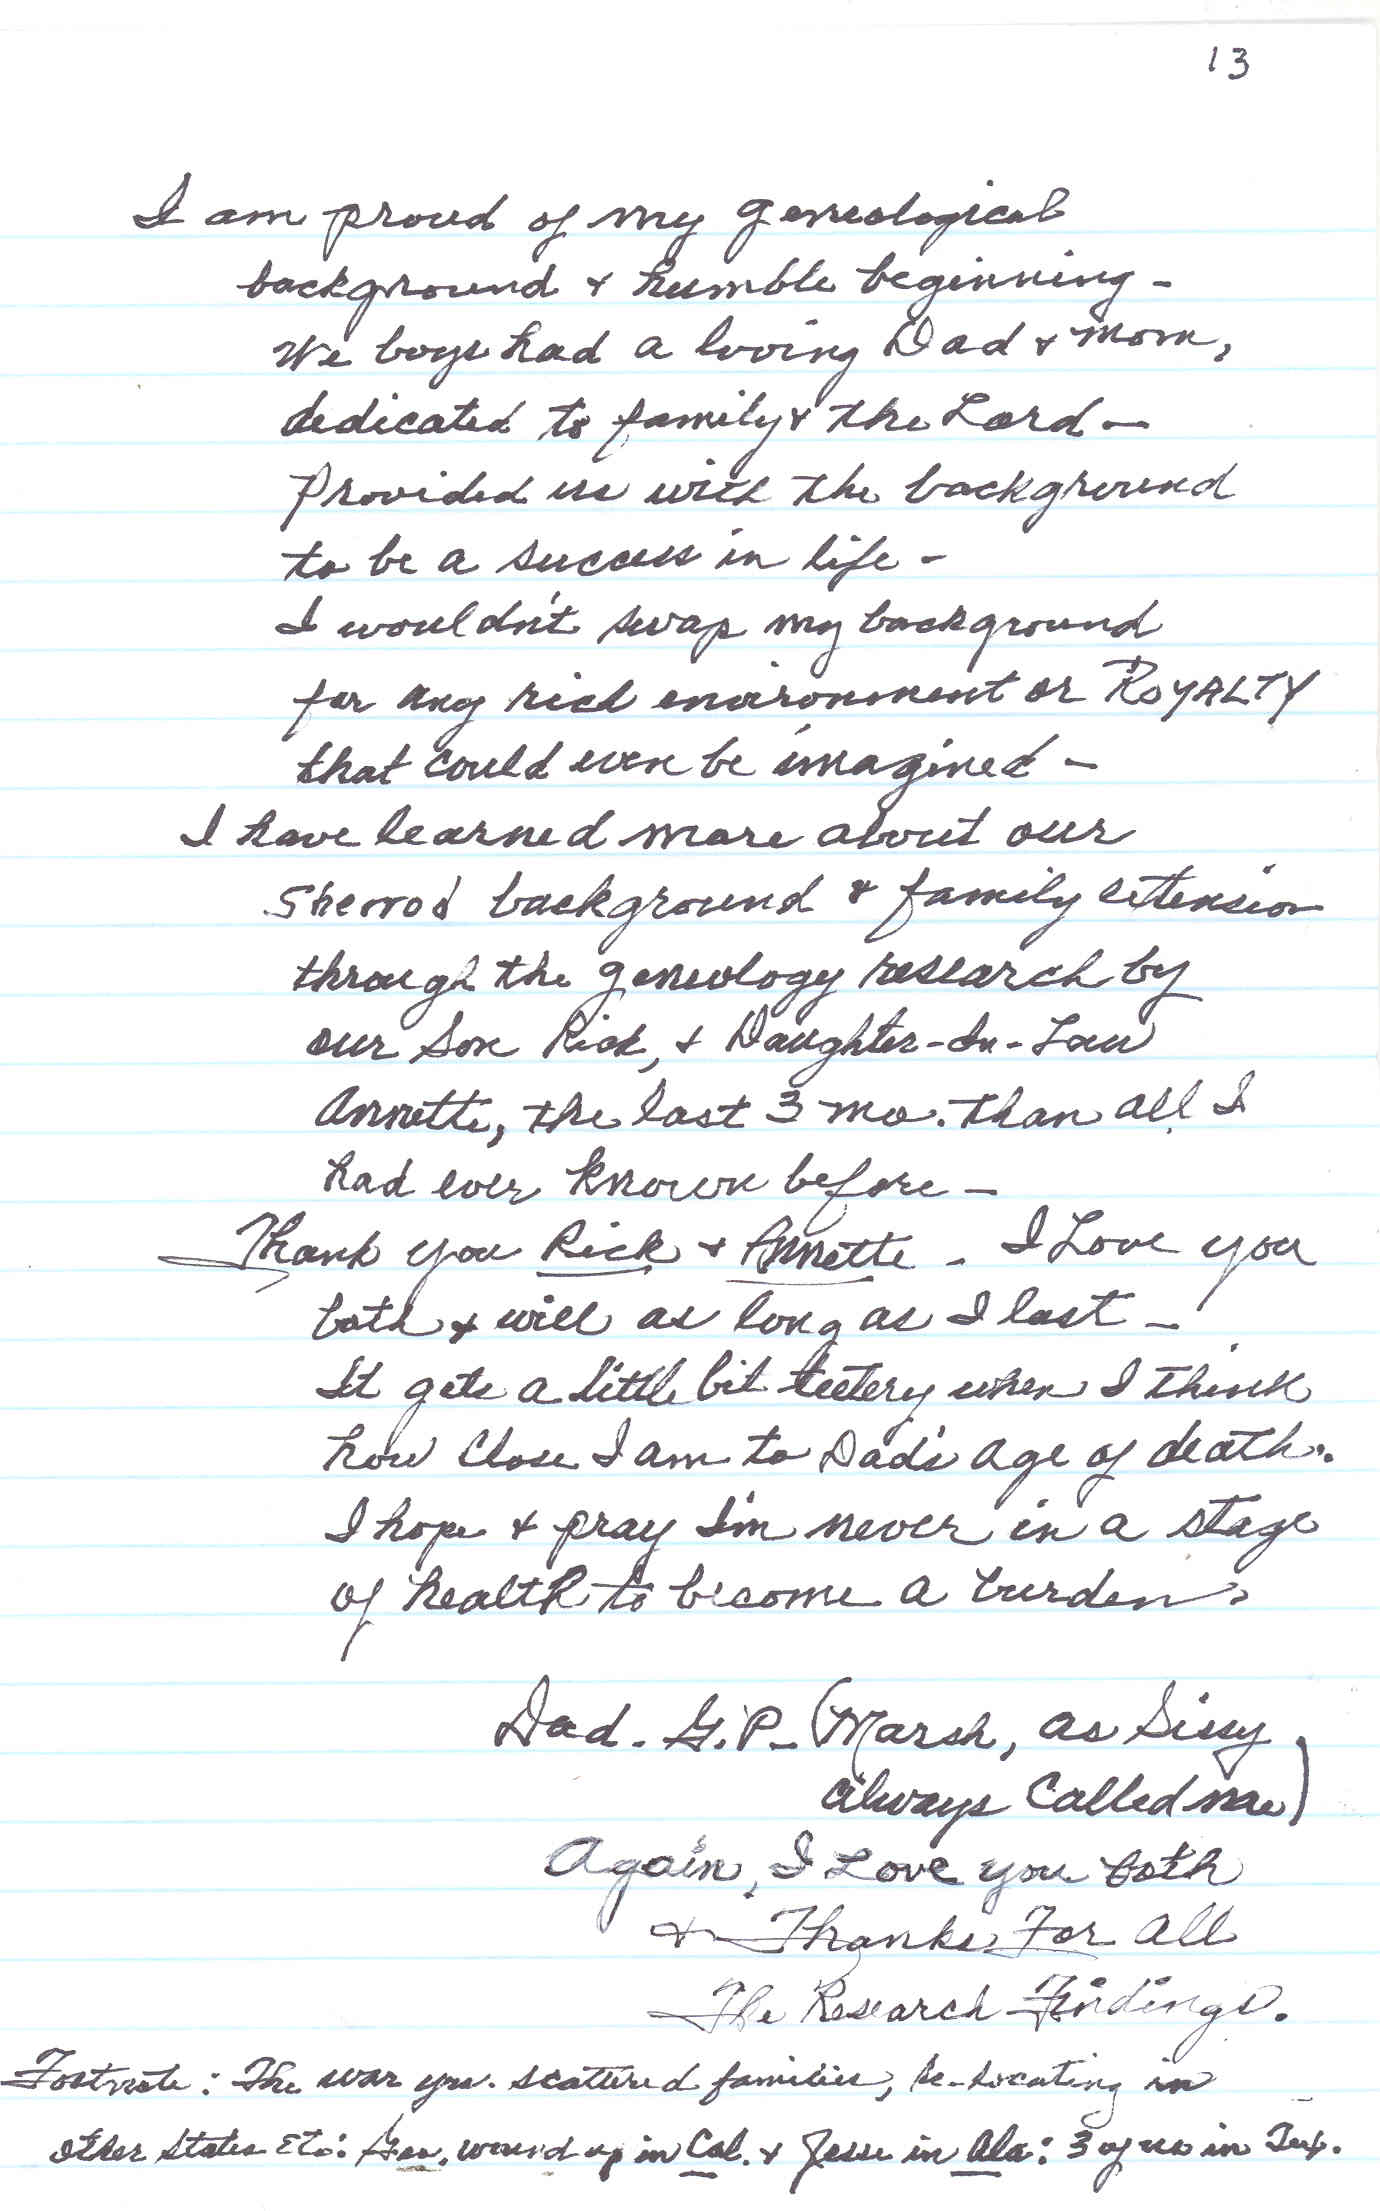 13
I am proud of my geneological
background & humble beginning -
We boys had a loving Dad & Mom,
dedicated to family & the Lord -
Provided us with the background
to be a success in life -
I wouldn't swap my background
for any rich environment or ROYALTY
that could ever be imagined -
I have learned more about our
Sherrod background & family extension
through the geneology research by
our Son Rick, & Daughter-In-Law
Annette, the last 3 mo. than all I
had ever known before -
Thank you Rick & Annette - I Love you
both & will as long as I last -
It gets a little bit teetery when I think
how close I am to Dad's age of death.
I hope & pray I'm never in a stage
of health to become a burden.
Dad. G.P. (Marsh, as Sissy
always called me)
Again, I Love you both
& Thanks For All
The Research Findings.
Footnote: The war yrs. scattered families, Re-locating in
other states Etc: Geo. wound up in Cal. & Jesse in Ala: 3 of us in Tex.